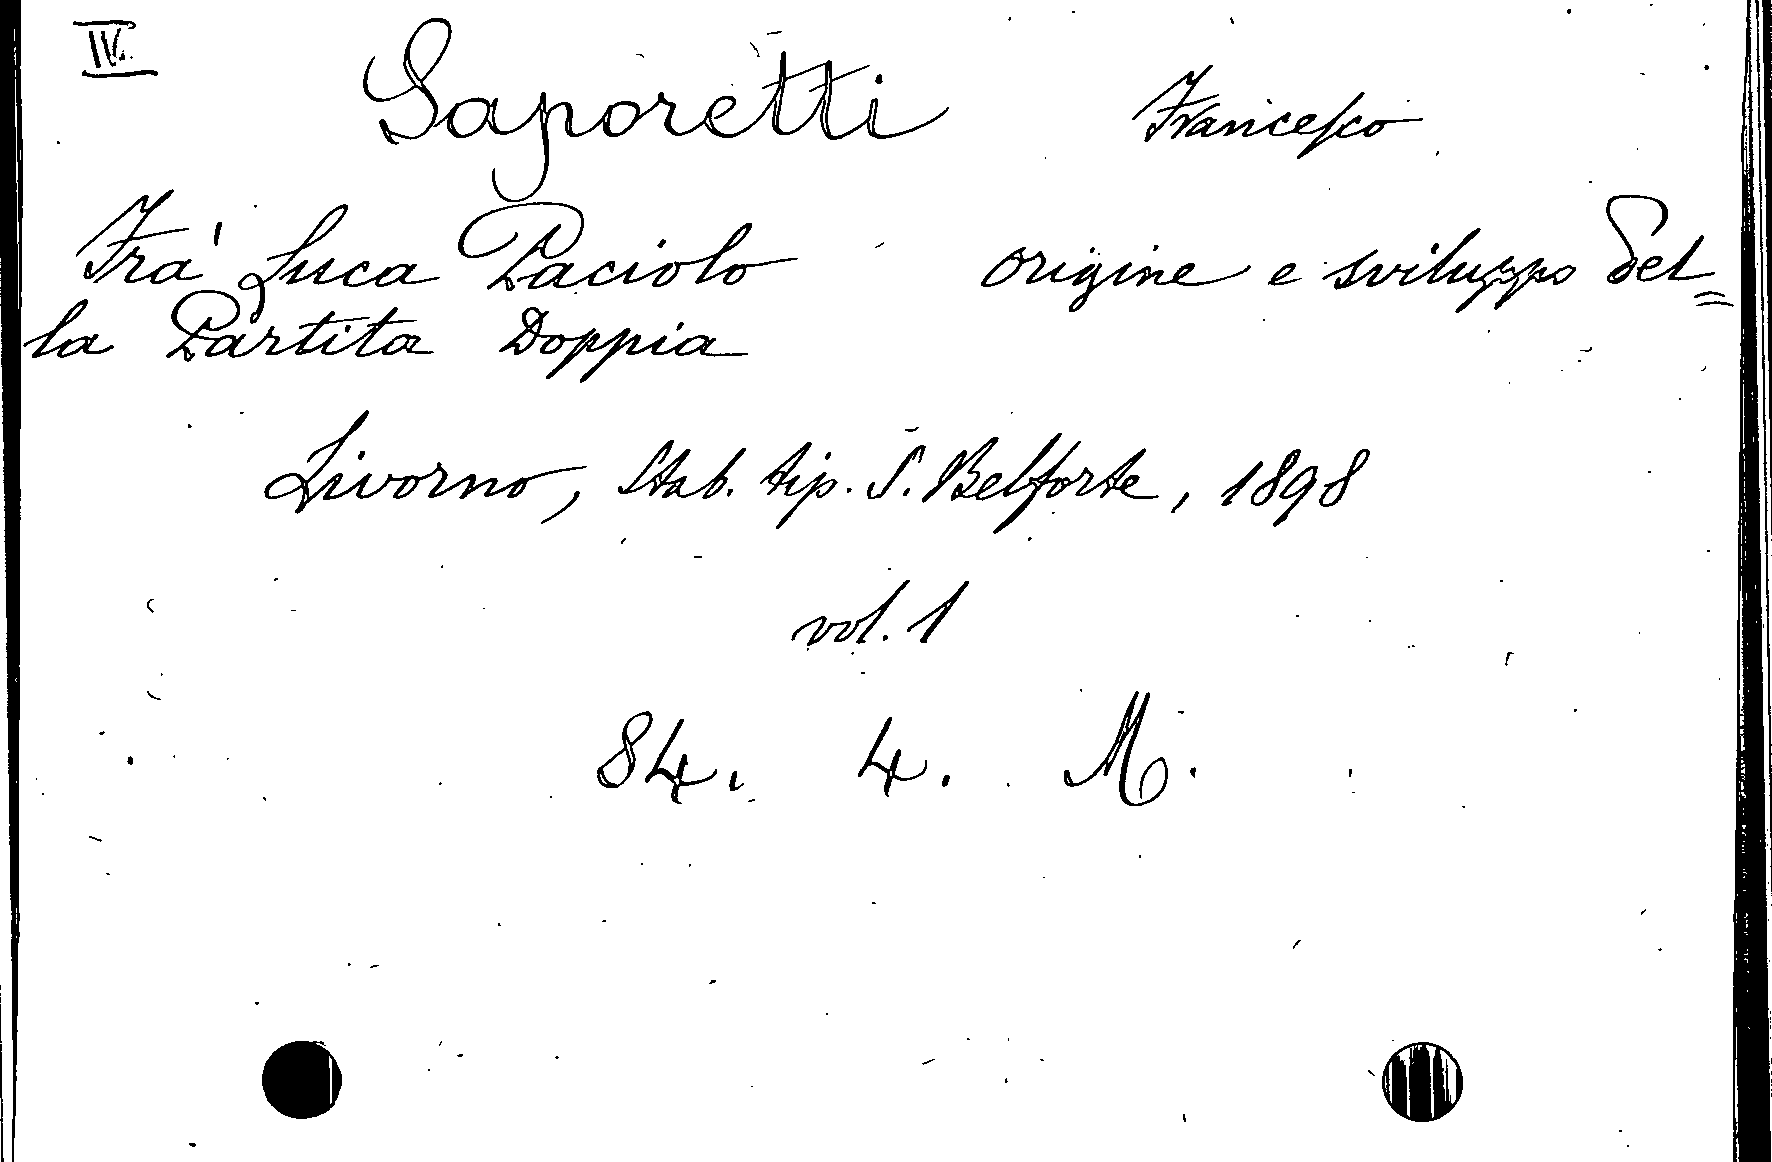 IV.
Saporetti Francesco
Fra' Luca Paciolo origine e sviluppo del=
la Partita Doppia
Livorno, Stab. tip. S. Belforte, 1898
vol. 1
84. 4. M.